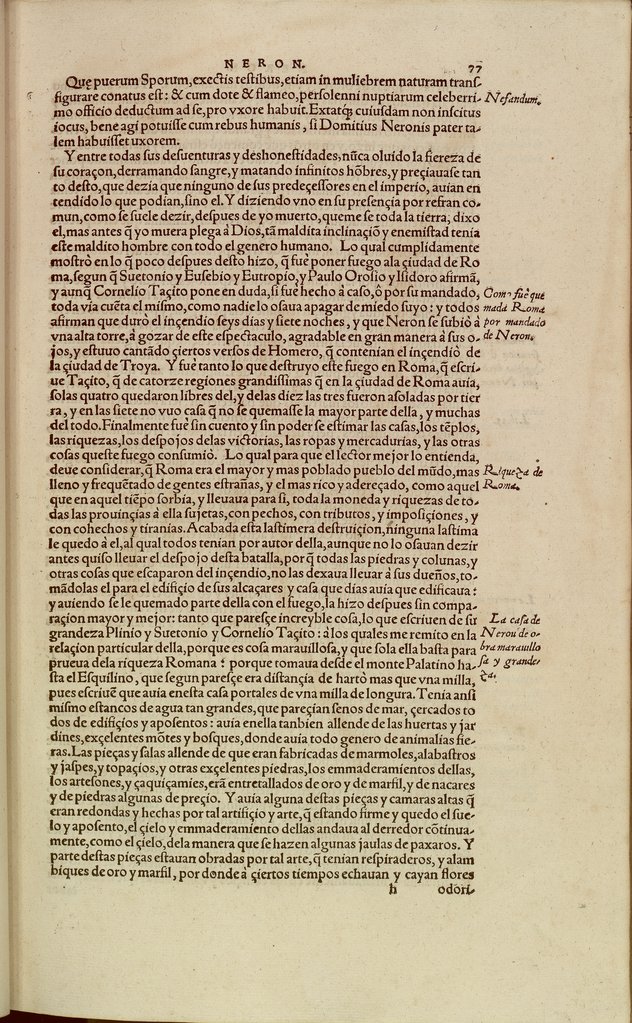 NERON.
77
Quę puerum Sporum, exectis testibus, etiam in muliebrem naturam trans-
figurare conatus est: & cum dote & flameo, persolenni nuptiarum celeberri-
mo officio deductum ad se, pro vxore habuit. Extatq; cuiusdam non inscitus
iocus, bene agi potuisse cum rebus humanis, si Domitius Neronis pater ta-
lem habuisset uxorem.
Nefandum.
Y entre todas sus desuenturas y deshonestidades, nũca oluido la fiereza de
su coraçon, derramando sangre, y matando infinitos hõbres, y preçiauase tan
to desto, que dezia que ninguno de sus predeçessores en el imperio, auian en-
tendido lo que podian, sino el. Y diziendo vno en su presençia por refran co-
mun, como se suele dezir, despues de yo muerto, queme se toda la tierra, dixo
el, mas antes q̃ yo muera plega à Dios, tã maldita inclinaçiõ y enemistad tenia
este maldito hombre con todo el genero humano. Lo qual cumplidamente
mostrò en lo q̃ poco despues desto hizo, q̃ fuè poner fuego ala çiudad de Ro
ma, segun q̃ Suetonio y Eusebio y Eutropio, y Paulo Orosio y Isidoro afirmã,
y aunq̃ Cornelio Taçito pone en duda, si fuè hecho à caso, ò por su mandado,
toda via cuẽta el mismo, como nadie lo osaua apagar de miedo suyo: y todos
afirman que durò el inçendio seys dias y siete noches, y que Neron se subiò à
vna alta torre, à gozar de este espectaculo, agradable en gran manera à sus o-
jos, y estuuo cantãdo çiertos versos de Homero, q̃ contenian el inçendiò de
la çiudad de Troya. Y fuè tanto lo que destruyo este fuego en Roma, q̃ escri-
ue Taçito, q̃ de catorze regiones grandissimas q̃ en la çiudad de Roma auia,
solas quatro quedaron libres del, y delas diez las tres fueron asoladas por tier
ra, y en las siete no vuo casa q̃ no se quemasse la mayor parte della, y muchas
del todo. Finalmente fuè sin cuento y sin poder se estimar las casas, los tẽplos,
las riquezas, los despojos delas victorias, las ropas y mercadurias, y las otras
cosas queste fuego consumiò. Lo qual para que el lector mejor lo entienda,
deue considerar, q̃ Roma era el mayor y mas poblado pueblo del mũdo, mas
lleno y frequẽtado de gentes estrañas, y el mas rico y adereçado, como aquel
que en aquel tiẽpo sorbia, y lleuaua para si, toda la moneda y riquezas de to-
das las prouinçias à ella sujetas, con pechos, con tributos, y imposiçiones, y
con cohechos y tiranias. Acabada esta lastimera destruiçion, ninguna lastima
le quedo à el, al qual todos tenian por autor della, aunque no lo osauan dezir
antes quiso lleuar el despojo desta batalla, porq̃ todas las piedras y colunas, y
otras cosas que escaparon del inçendio, no las dexaua lleuar à sus dueños, to-
mãdolas el para el edifiçio de sus alcaçares y casa que dias auia que edificaua:
y auiendo se le quemado parte della con el fuego, la hizo despues sin compa-
raçion mayor y mejor: tanto que paresçe increyble cosa, lo que escriuen de su
grandeza Plinio y Suetonio y Cornelio Taçito: à los quales me remito en la
relaçion particular della, porque es cosa marauillosa, y que sola ella basta para
prueua dela riqueza Romana: porque tomaua desde el monte Palatino ha-
sta el Esquilino, que segun paresçe era distançia de harto mas que vna milla,
pues escriuẽ que auia enesta casa portales de vna milla de longura. Tenia ansi
mismo estancos de agua tan grandes, que pareçian senos de mar, çercados to
dos de edifiçios y aposentos: auia enella tanbien allende de las huertas y jar
dines, exçelentes mõtes y bosques, donde auia todo genero de animalias fie-
ras. Las pieças y salas allende de que eran fabricadas de marmoles, alabastros
y jaspes, y topaçios, y otras exçelentes piedras, los emmaderamientos dellas,
los artesones, y çaquiçamies, erã entretallados de oro y de marfil, y de nacares
y de piedras algunas de preçio. Y auia alguna destas pieças y camaras altas q̃
eran redondas y hechas por tal artifiçio y arte, q̃ estando firme y quedo el sue-
lo y aposento, el çielo y emmaderamiento dellas andaua al derredor cõtinua-
mente, como el çielo, dela manera que se hazen algunas jaulas de paxaros. Y
parte destas pieças estauan obradas por tal arte, q̃ tenian respiraderos, y alam
biques de oro y marfil, por donde à çiertos tiempos echauan y cayan flores
Como fuè que
mada Roma
por mandado
de Neron.
Riqueza de
Roma.
La casa de
Neron de o-
bra marauillo
sa y grande-
ça.
h
odori-